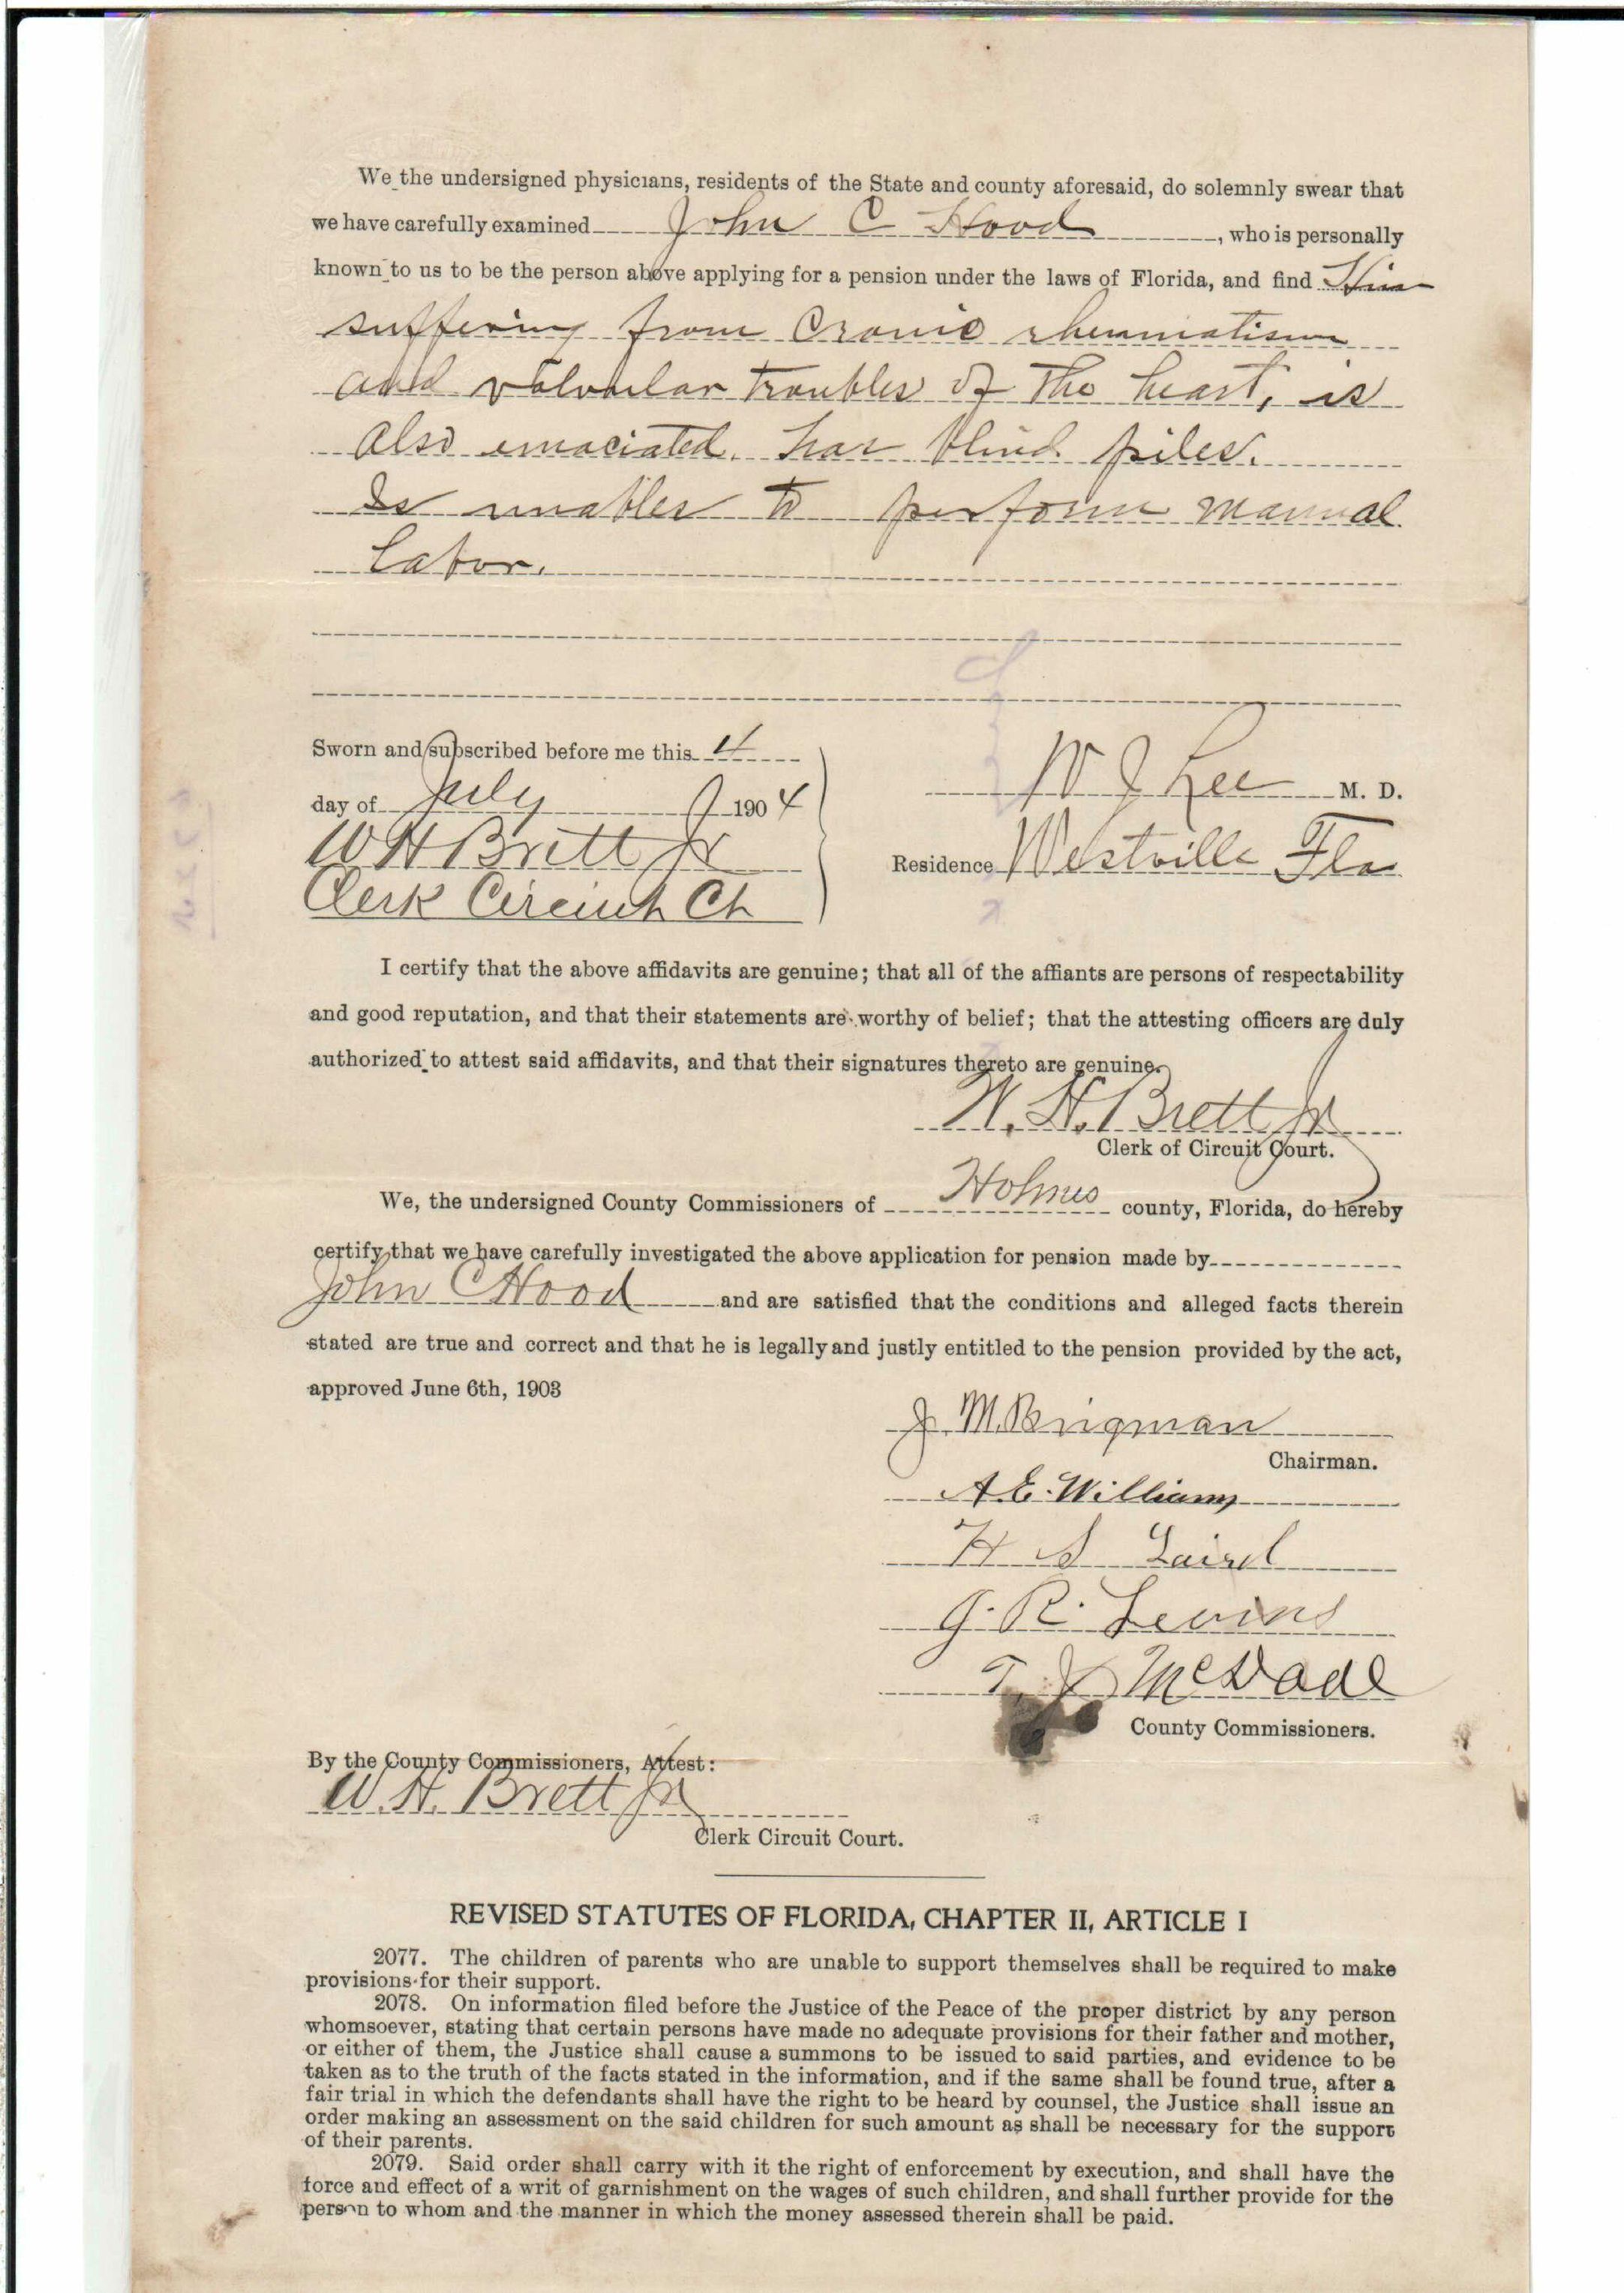 We the undersigned physicians, residents of the State and county aforesaid, do solemnly swear that
we have carefully examined John C Hood, who is personally
known to us to be the person above applying for a pension under the laws of Florida, and find Him
suffering from Cronic rheumatism
and valvular troubles of the heart, is
also emaciated. has blind piles.
Is unables to perform manual
labor.
Sworn and subscribed before me this 4
day of July 1904
W H Brett Jr
Clerk Circuit Ct
W J Lee M. D.
Residence Westville Fla
I certify that the above affidavits are genuine; that all of the affiants are persons of respectability
and good reputation, and that their statements are worthy of belief; that the attesting officers are duly
authorized to attest said affidavits, and that their signatures thereto are genuine.
W. H. Brett Jr
Clerk of Circuit Court.
We, the undersigned County Commissioners of Holmes county, Florida, do hereby
certify that we have carefully investigated the above application for pension made by
John C Hood and are satisfied that the conditions and alleged facts therein
stated are true and correct and that he is legally and justly entitled to the pension provided by the act,
approved June 6th, 1903
J. M. Brigman
Chairman.
A. E. Williams
H S Laird
G. R. Levins
T. J McDade
County Commissioners.
By the County Commissioners, Attest:
W. H. Brett Jr
Clerk Circuit Court.
REVISED STATUTES OF FLORIDA, CHAPTER II, ARTICLE I
2077. The children of parents who are unable to support themselves shall be required to make
provisions for their support.
2078. On information filed before the Justice of the Peace of the proper district by any person
whomsoever, stating that certain persons have made no adequate provisions for their father and mother,
or either of them, the Justice shall cause a summons to be issued to said parties, and evidence to be
taken as to the truth of the facts stated in the information, and if the same shall be found true, after a
fair trial in which the defendants shall have the right to be heard by counsel, the Justice shall issue an
order making an assessment on the said children for such amount as shall be necessary for the support
of their parents.
2079. Said order shall carry with it the right of enforcement by execution, and shall have the
force and effect of a writ of garnishment on the wages of such children, and shall further provide for the
person to whom and the manner in which the money assessed therein shall be paid.